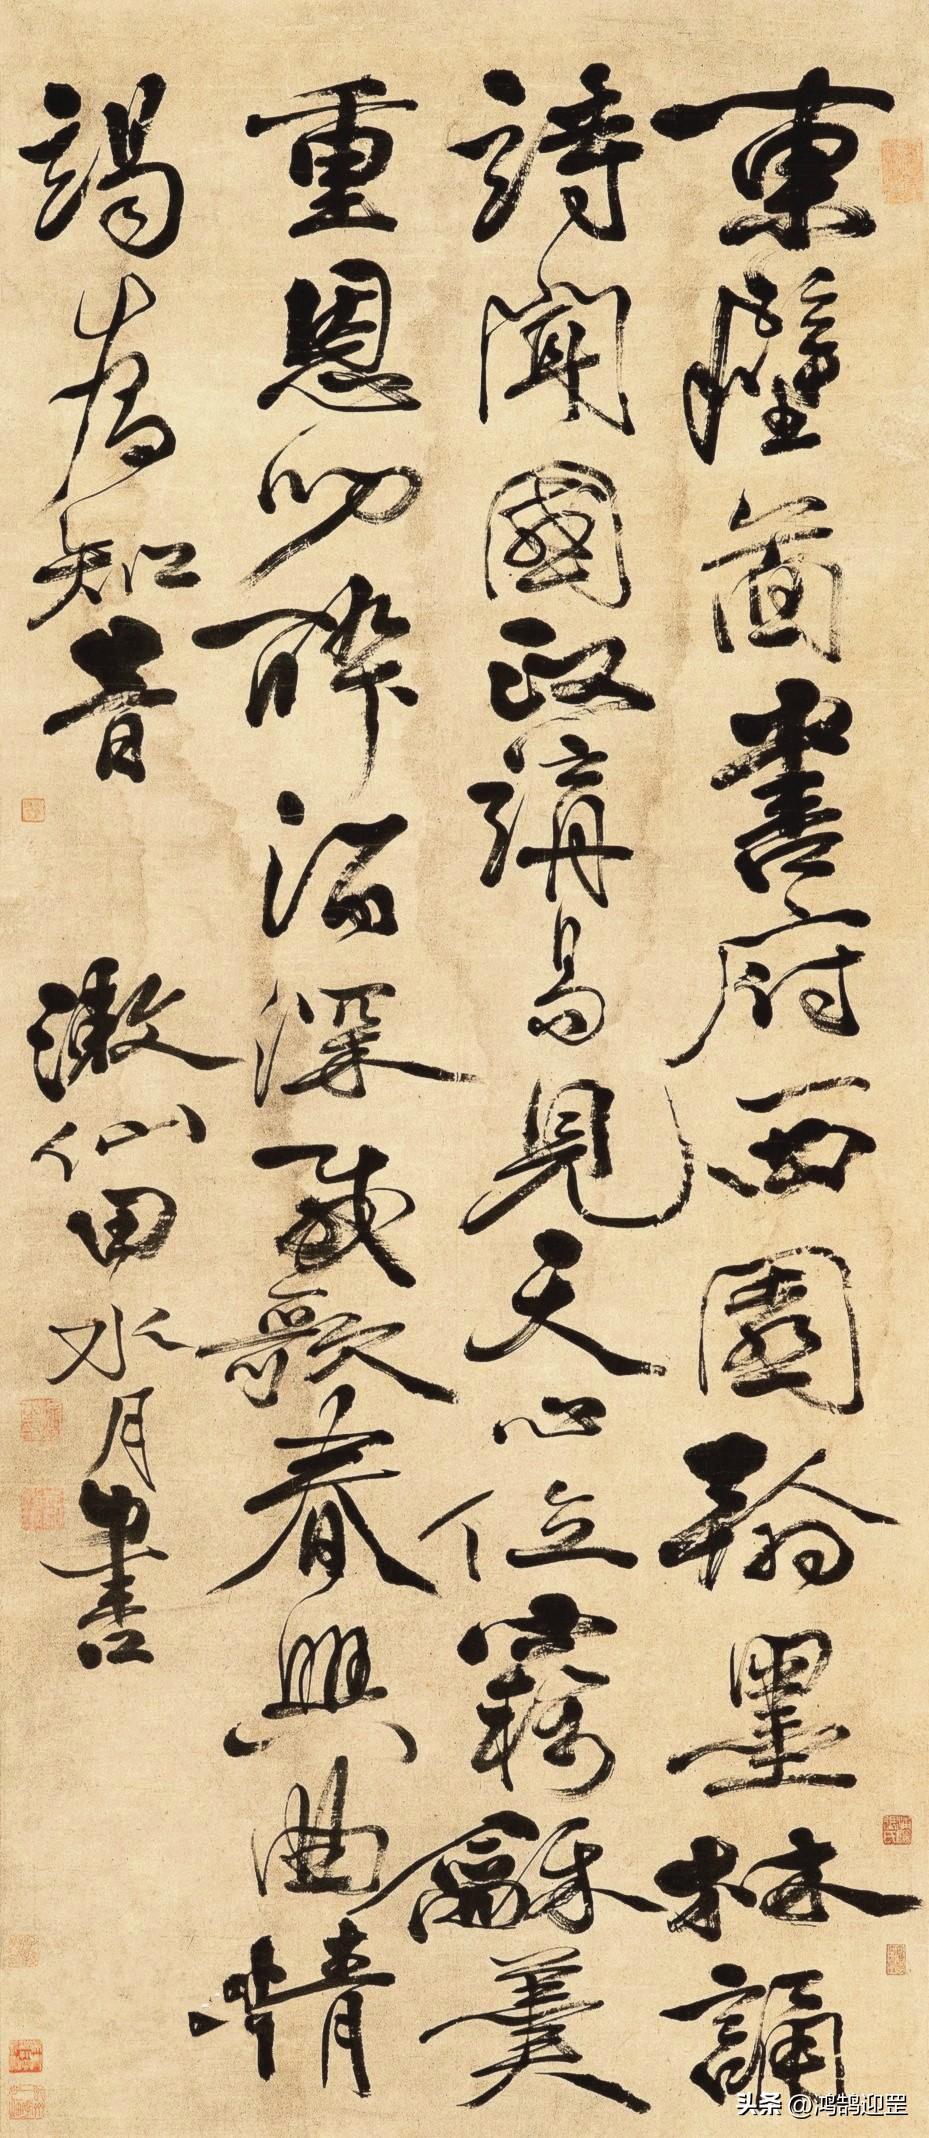 東壁圖書府西園翰墨林誦
詩聞國政講易見天心位竊龢羹
重恩叨醉酒深緩歌春興曲情
竭為知音
漱仙田水月書
头条 @鸿鹄迎罡